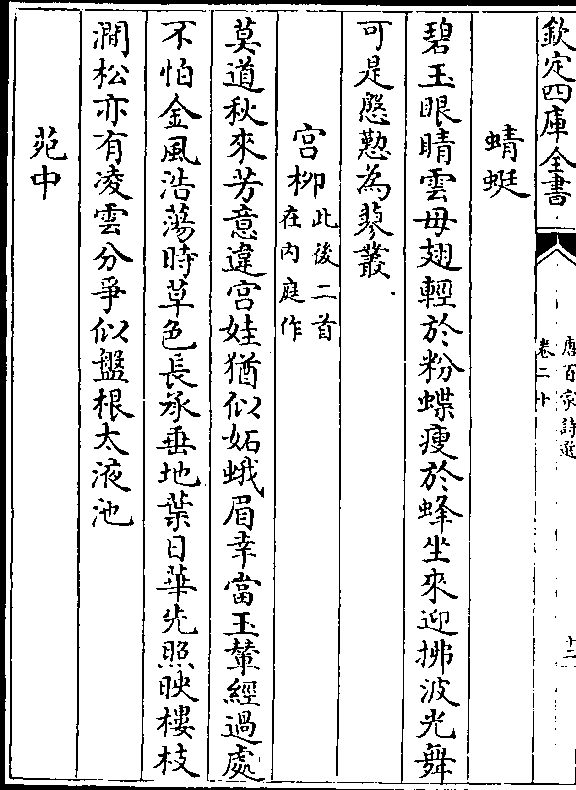 欽定四庫全書
唐百家詩選
卷二十
十二
蜻蜓
碧玉眼睛雲母翅輕於粉蝶瘦於蜂坐來迎拂波光舞
可是慇懃為蓼叢
宮柳此後二首
在內庭作
莫道秋來芳意違宮娃猶似妬蛾眉幸當玉輦經過處
不怕金風浩蕩時草色長承垂地葉日華先照映樓枝
澗松亦有凌雲分爭似盤根太液池
苑中